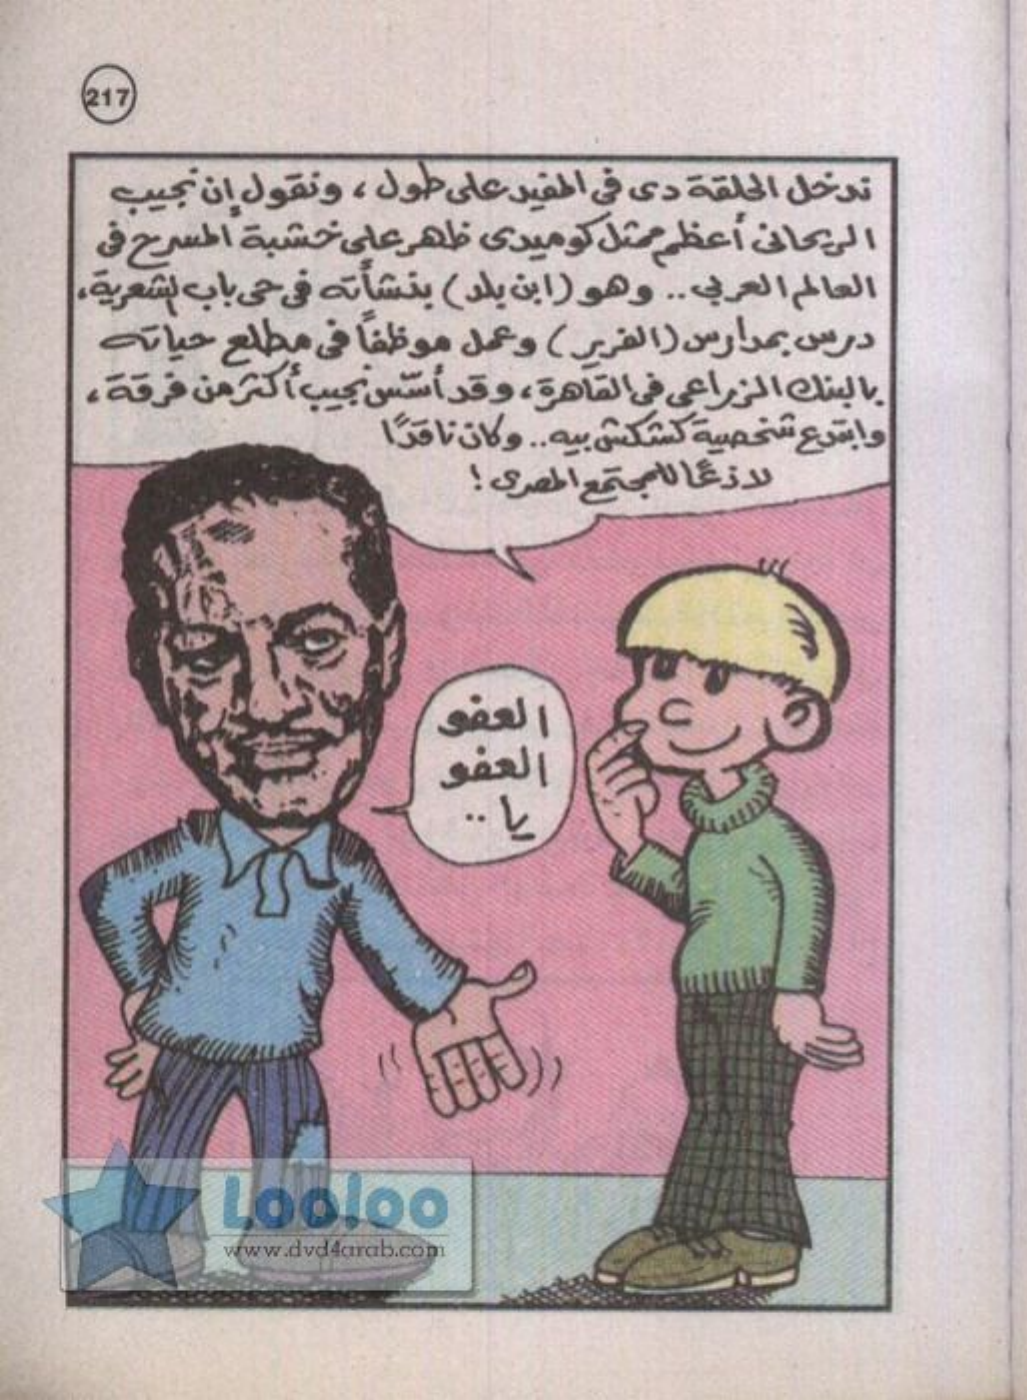 217
ندخل الحلقة دى فى المفيد على طول، ونقول إن نجيب
الريحانى أعظم ممثل كوميدى ظهر على خشبة المسرح فى
العالم العربى.. وهو (ابن بلد) بنشأته فى حى باب الشعرية،
درس بمدارس (الفرير) وعمل موظفاً فى مطلع حياته
بالبنك الزراعى فى القاهرة، وقد أسّس نجيب أكثر من فرقة،
وابتدع شخصية كشكش بيه.. وكان ناقدًا
لاذعًا للمجتمع المصرى!
العفو
العفو
يا..
Looloo
www.dvd4arab.com